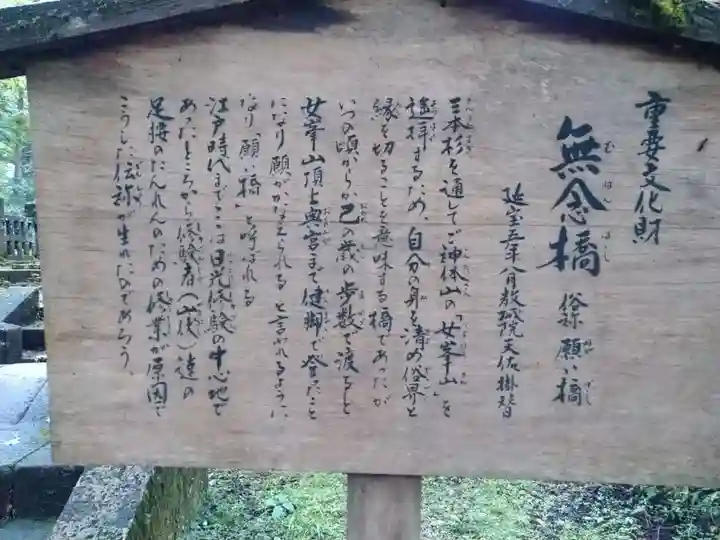 重要文化財
無念橋 俗称 願い橋
延宝五年八月教城院天佑掛替
三本杉を通してご神体山の「女峯山」を
遥拝するため、自分の身を清め俗界と
縁を切ることを意味する橋であったが
いつの頃からか己の歳の歩数で渡ると
女峯山頂上奥宮まで健脚で登たこと
になり願がかなえられると言われるように
なり「願い橋」と呼ばれる
江戸時代までここは日光修験の中心地で
あったところから修験者（山伏）達の
足腰のたんれんのための修業が原因で
こうした伝説が生れたのであろう。